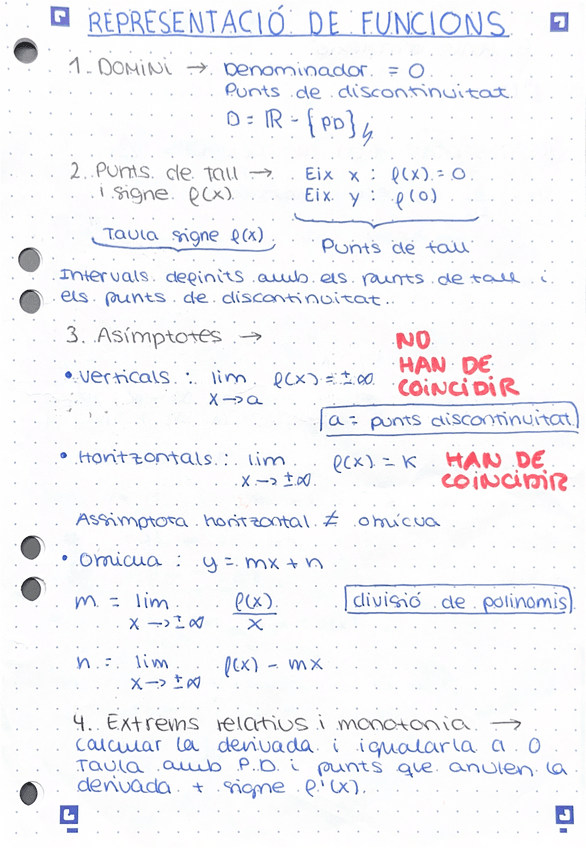 REPRESENTACIÓ DE FUNCIONS
1. DOMINI → Denominador = 0
Punts de discontinuitat
D = ℝ - {PD}
2. Punts de tall → Eix x : f(x) = 0
i signe f(x) Eix y : f(0)
Taula signe f(x) Punts de tall
Intervals definits amb els punts de tall i
els punts de discontinuitat.
3. Asímptotes →
NO
HAN DE
COINCIDIR
• Verticals : lim f(x) = ±∞
x→a
a = punts discontinuitat
• Horitzontals : lim f(x) = K
x→±∞
HAN DE
COINCIDIR
Assimptota horitzontal ≠ obliqua
• Obliqua : y = mx + n
m = lim f(x)/x
x→±∞
divisió de polinomis
n = lim f(x) - mx
x→±∞
4. Extrems relatius i monotonia →
calcular la derivada i igualarla a 0
Taula amb P.D. i punts que anulen la
derivada + signe f'(x).